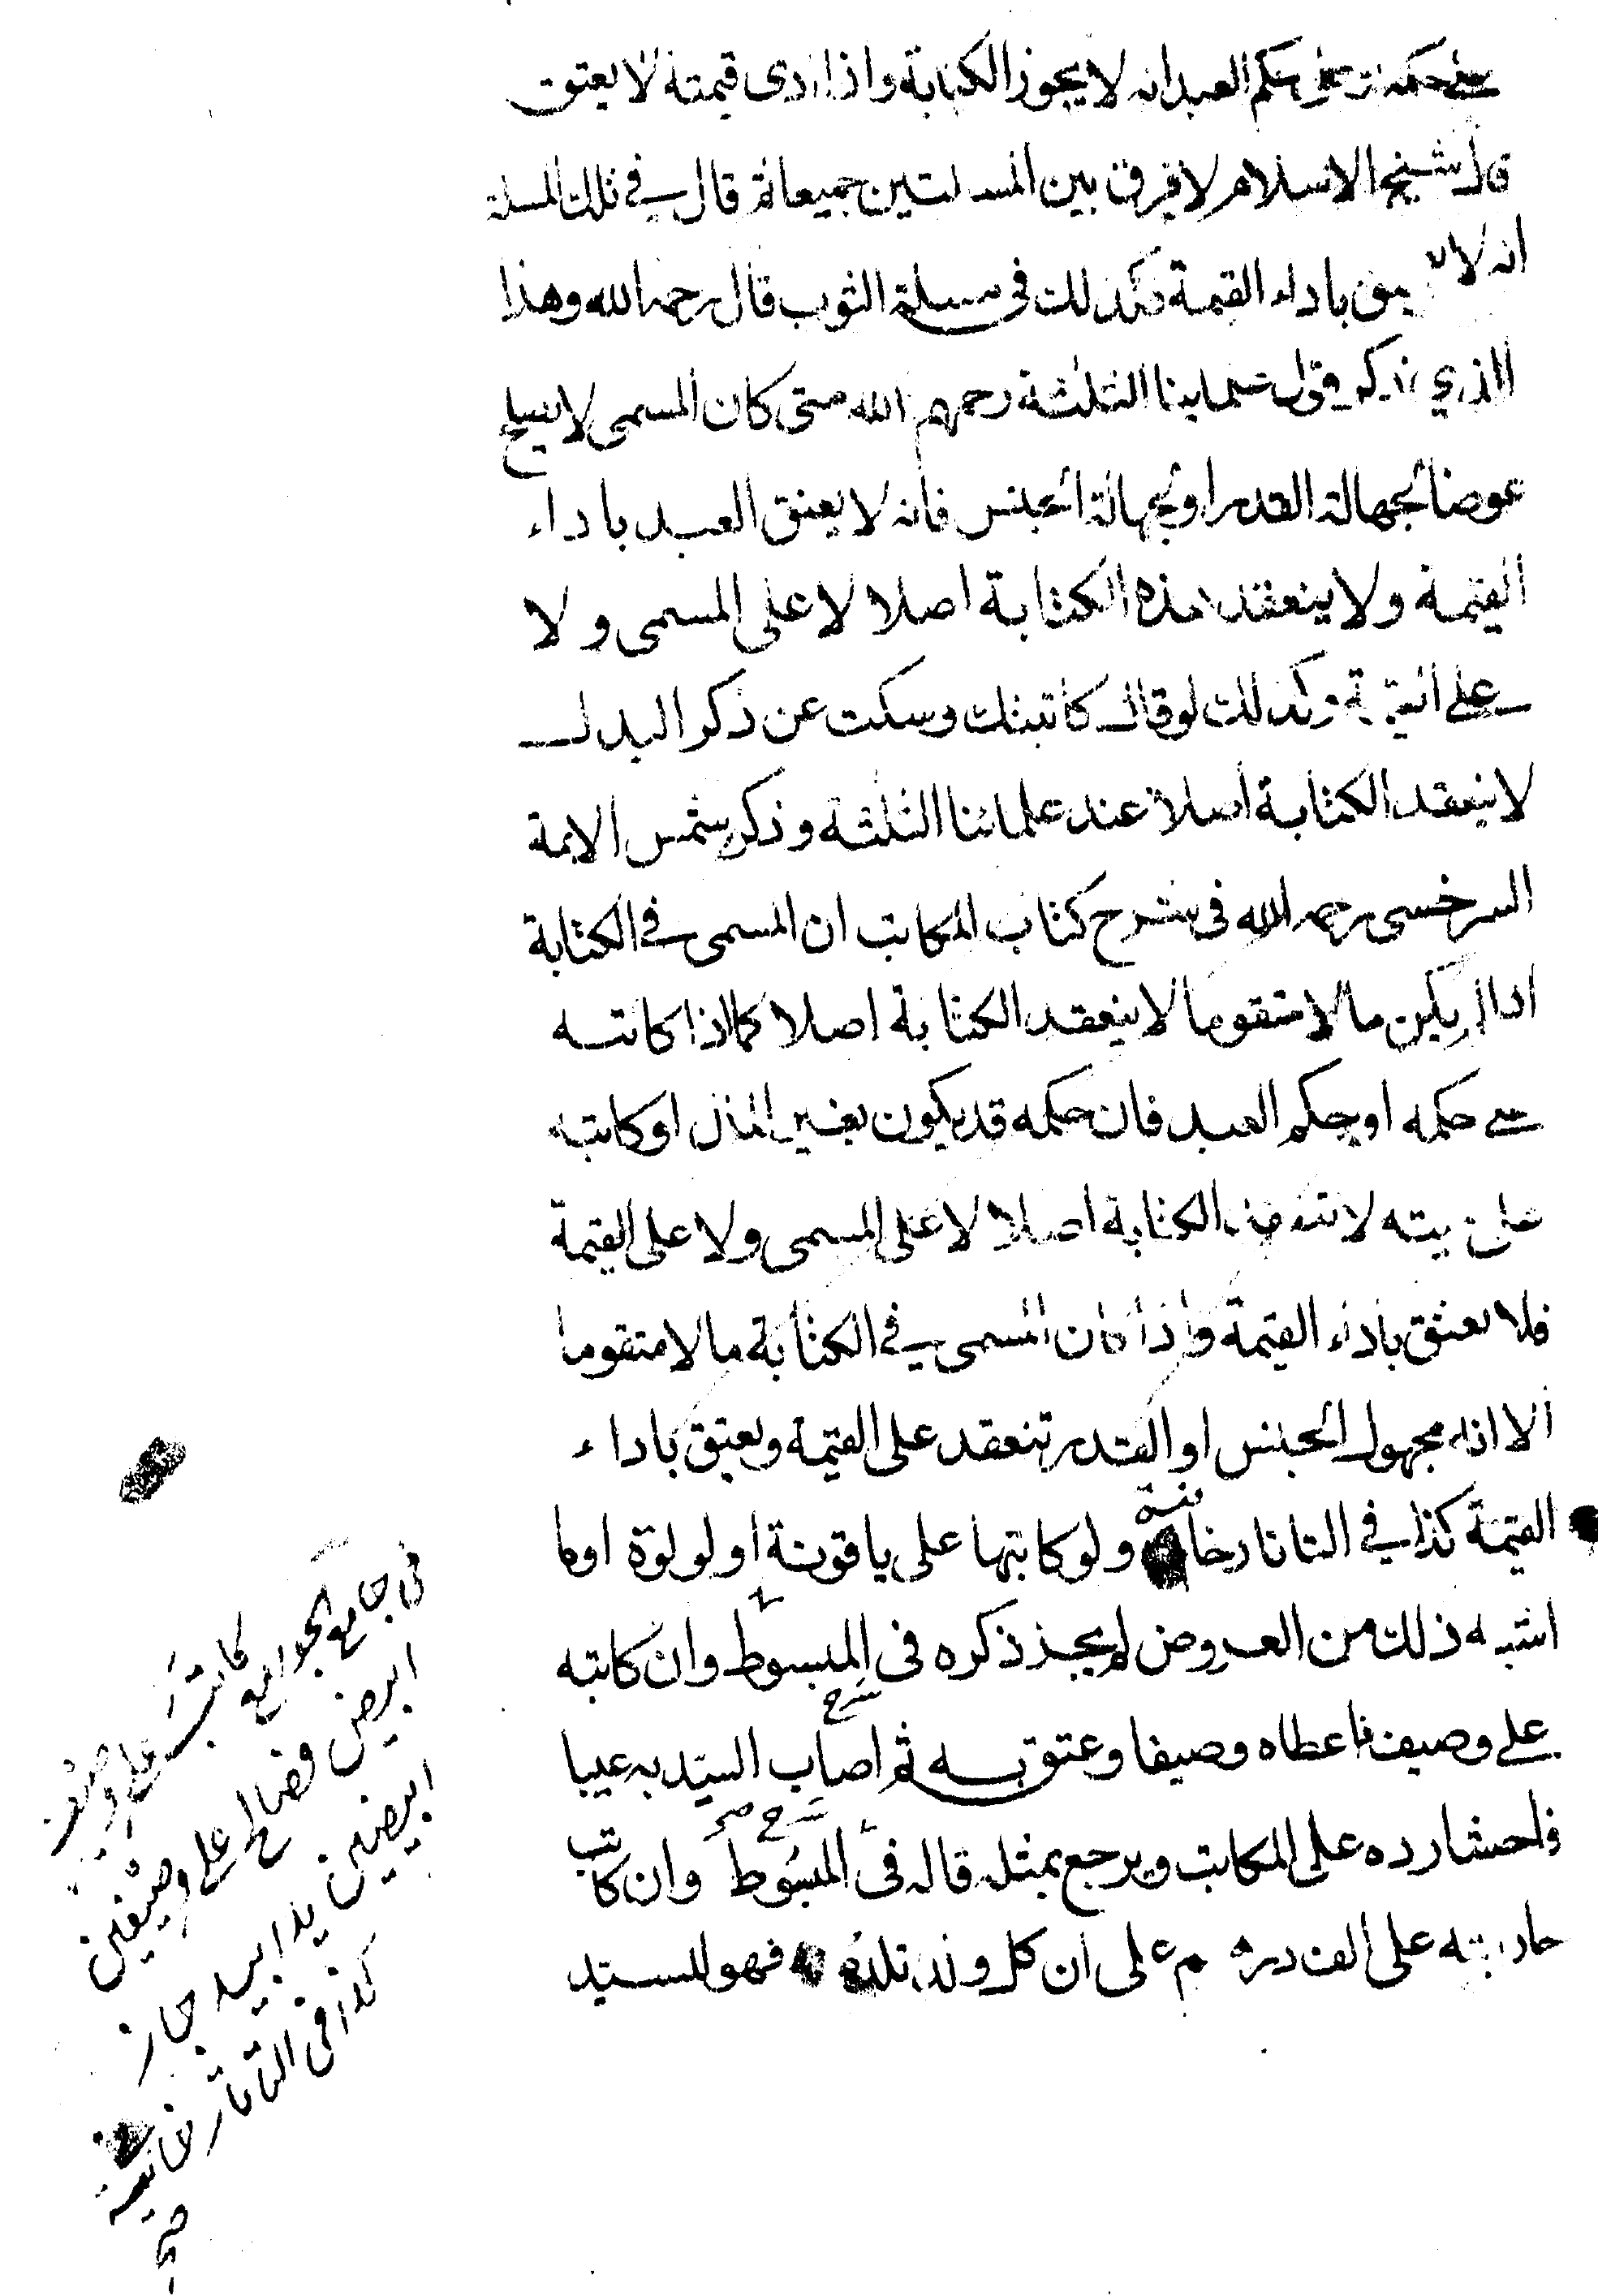 على حكمه او على حكم العبد انه لا يجوز الكتابة واذا ادى قيمته لا يعتق
قال شيخ الاسلام لا فرق بين المسئلتين جميعا ثم قال في تلك المسلة
انه لا يعتق باداء القيمة فكذلك في مسئلة الثوب قال رحمه الله وهذا
الذي ذكر قول علماينا الثلثة رحمهم الله متى كان المسمى لا يصلح
عوضا لجهالة القدر او لجهالة الجنس فانه لا يعتق العبد باداء
القيمة ولا ينعقد هذه الكتابة اصلا لا على المسمى ولا
على القيمة وكذلك لو قال كاتبتك وسكت عن ذكر البدل
لا ينعقد الكتابة اصلا عند علمائنا الثلثة وذكر شمس الايمة
السرخسي رحمه الله في شرح كتاب المكاتب ان المسمى في الكتابة
اذا لم يكن مالا متقوما لا ينعقد الكتابة اصلا كما اذا كاتبه
على حكمه او حكم العبد فان حكمه قد يكون بغير المال او كاتبه
على ميتة لا تنعقد الكتابة اصلا لا على المسمى ولا على القيمة
فلا يعتق باداء القيمة واذا كان المسمى في الكتابة مالا متقوما
الا انه مجهول الجنس او القدر تنعقد على القيمة ويعتق باداء
القيمة كذا في التاتارخانية ولو كاتبها على ياقوتة او لولوة او ما
اشبه ذلك من العروض لم يجز ذكره في المبسوط وان كاتبه
على وصيف فاعطاه وصيفا وعتق به ثم اصاب السيد به عيبا
شرح
فاحشا رده على المكاتب ويرجع بمثله قاله في المبسوط وان كاتب
شرح
جاريته على الف درهم على ان كل ولد تلده فهو للسيد
في جامع الجوامع كاتب على وصيف
ابيض فصالح على وصيفين
ابيضين يدا بيد جاز
كذا في التاتارخانية